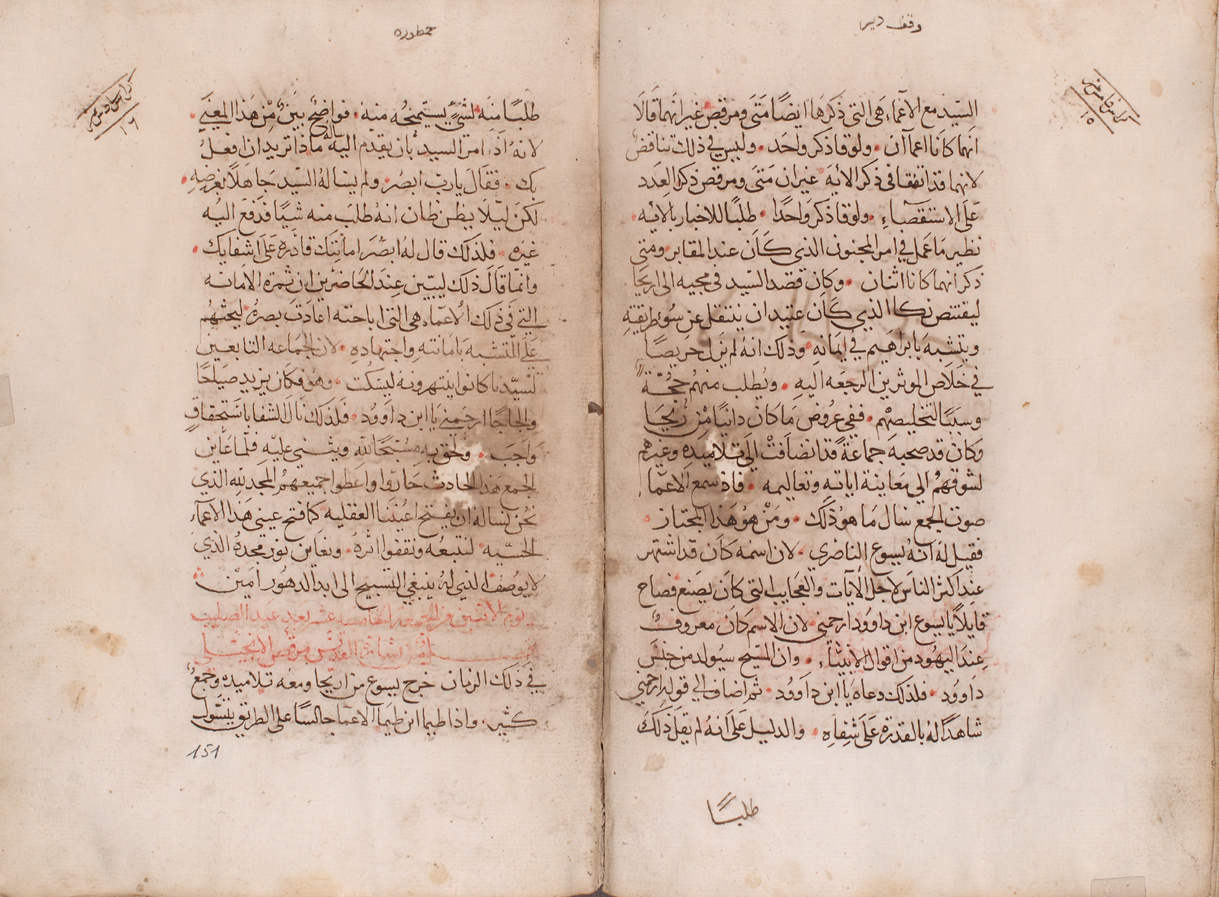 وقف دير
السيد مع الاعماء هي التي ذكرها ايضًا متى ومرقص غير انهما قالا
انهما كانا اعماآن • ولوقا ذكر واحد • وليس في ذلك تناقض
لانهما قد اتفقا في ذكر الايه غير ان متى ومرقص ذكرا العدد
على الاستقصاء • ولوقا ذكر واحدًا • طلبًا للاخبار بالايه •
نظير ما عمل في امر المجنون الذي كان عند المقابر ومتى
ذكر انهما كانا اثنان • وكان قصد السيد في مجيه الى اريحا
ليقتنص زكا الذي كان عتيد ان ينتقل عن سو طريقته
ويتشبه بابراهيم في ايمانه • وذلك انه لم يزل حريصًا
في خلاص الموثرين الرجعه اليه • ويطلب منهم حجّة
وسببًا لتخليصهم • ففي عروض ما كان دانيًا من ريحا
وكان قد صحبه جماعة قد انضافت الى تلاميذه وغيرهم
لشوقهم الى معاينة اياته وتعاليمه • فاذ سمع الاعما
صوت الجمع سال ما هو ذلك • ومن هو هذا المجتاز •
فقيل له انه يسوع الناصري • لان اسمه كان قد اشتهر
عند اكثر الناس لاجل الآيات والعجايب التي كان يصنع فصاح
قايلاً يا يسوع ابن داوود ارحمني • لان الاسم كان معروف
عند اليهود من اقوال الانبياء • وان المسيح سيولد من جنس
داوود • فلذلك دعاه يا ابن داوود • ثم اضاف الى قوله ارحمني
شاهدًا له بالقدرة على شفاه • والدليل على انه لم يقل ذلك
طلبًا
١٥
محطوره
١٦
طلبًا منه لشيٍ يستمنحه منه • فواضحٌ بيّنٌ من هذا المعنى •
لانه اذ امر السيد بان يقدم اليه ساله ماذا تريد ان افعل
بك • فقال يا رب ابصر • ولم يساله السيد جاهلاً بغرضه •
لكن ليلا يظن ظان انه طلب منه شيًا فدفع اليه
غيره • فلذلك قال له ابصر امانتك قادرة على اشفايك •
وانما قال ذلك ليبين عند الحاضرين ان ثمرة الامانه
التي في ذلك الاعماء هي التي اباحته اعادت بصره ليحثهم
على التشبه بامانته واجتهاده • لان الجماعه التابعين
لسيدنا كانوا ينتهرونه ليسكت • وهو فكان يزيد صياحًا
والحاحًا ارحمني يا ابن داوود • فلذلك نال الشفا باستحقاقٍ
واجب • ولحق به مسبحًا لله ويثني عليه فلما عاين
الجمع هذا الحادث حاروا واعطوا جميعهم المجد لله الذي
نحن نساله ان يفتح اعيننا العقليه كما فتح عيني هذا الاعماء
الحسّيه • لنتبعه ونقفوا اثره • ونعاين نور مجده الذي
لا يوصف الذي له ينبغي التسبيح الى ابد الدهور امين
يوم الاثنين من الجمعه الخامسه عشر بعد عيد الصليب
فصل من بشارة القديس مرقص الانجيلي
في ذلك الزمان خرج يسوع من اريحا ومعه تلاميذه وجمعٌ
كثير • واذا طيما ابن طيما الاعما جالسًا على الطريق يتسول
151